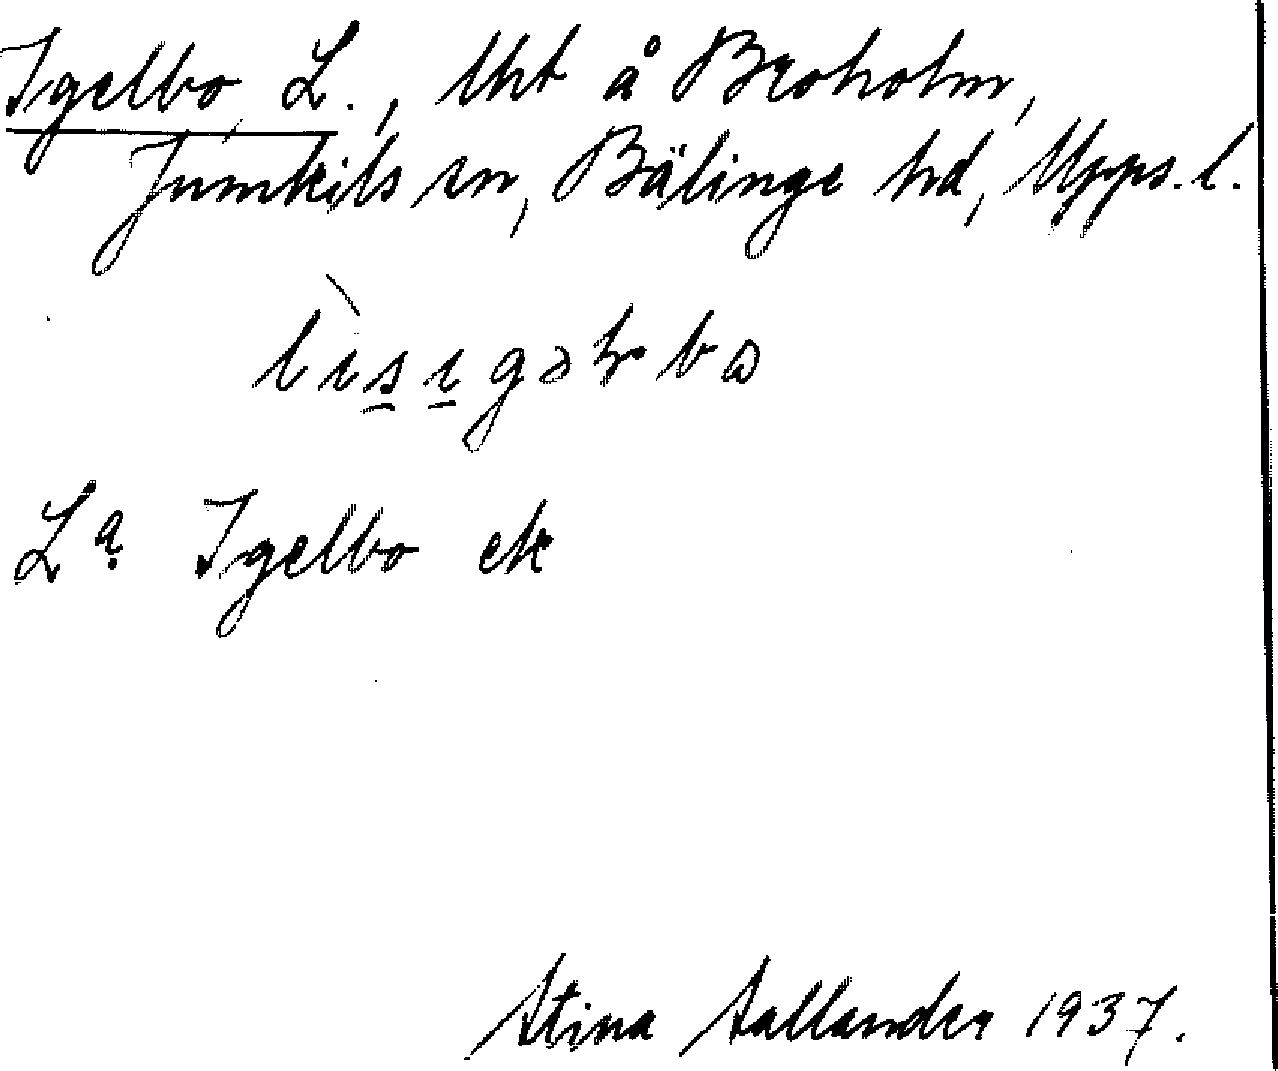 Igelbo, L., lht å Broholm,
Jumkils sn, Bälinge hd, Upps. l.
lìsıgəɫbɷ
Lª Igelbo ek
Stina Sallander 1937.